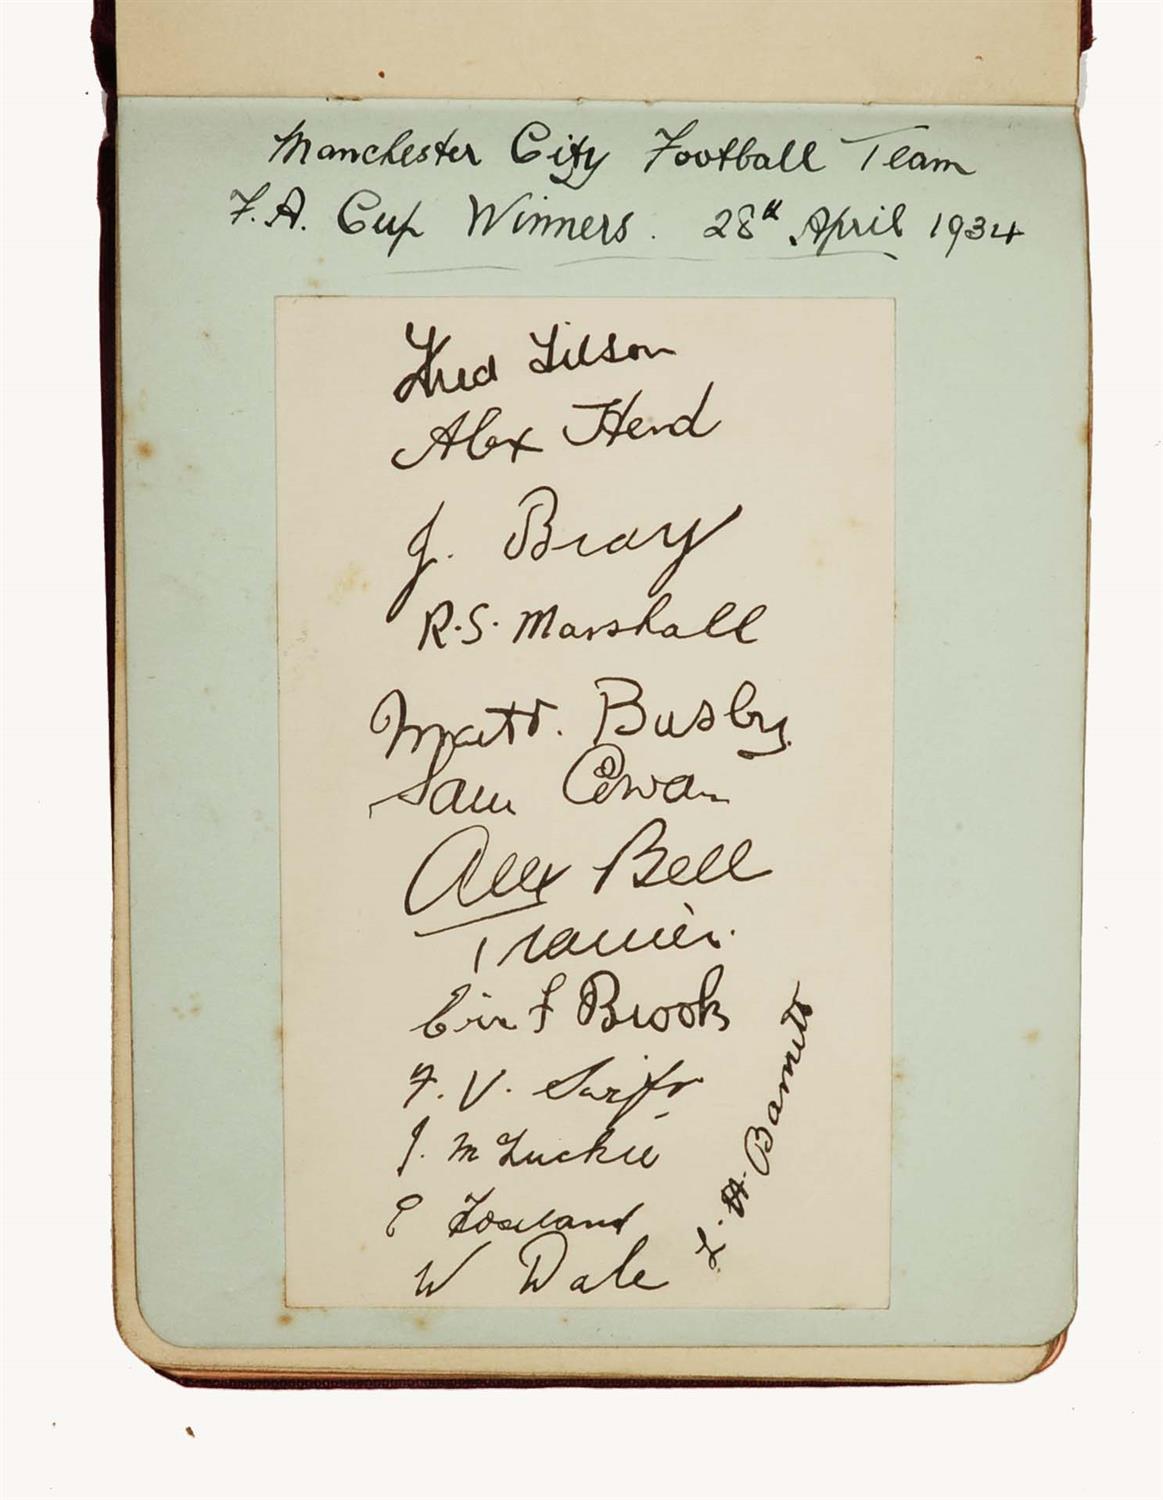 Manchester City Football Team
F.A. Cup Winners. 28th April 1934
Fred Tilson
Alex Herd
J. Bray
R.S. Marshall
Matt. Busby
Sam Cowan
Alex Bell
Trainer.
Eric F Brook
F. V. Swift
J. McLuckie
E Toseland
W Dale
L. H. Barnett